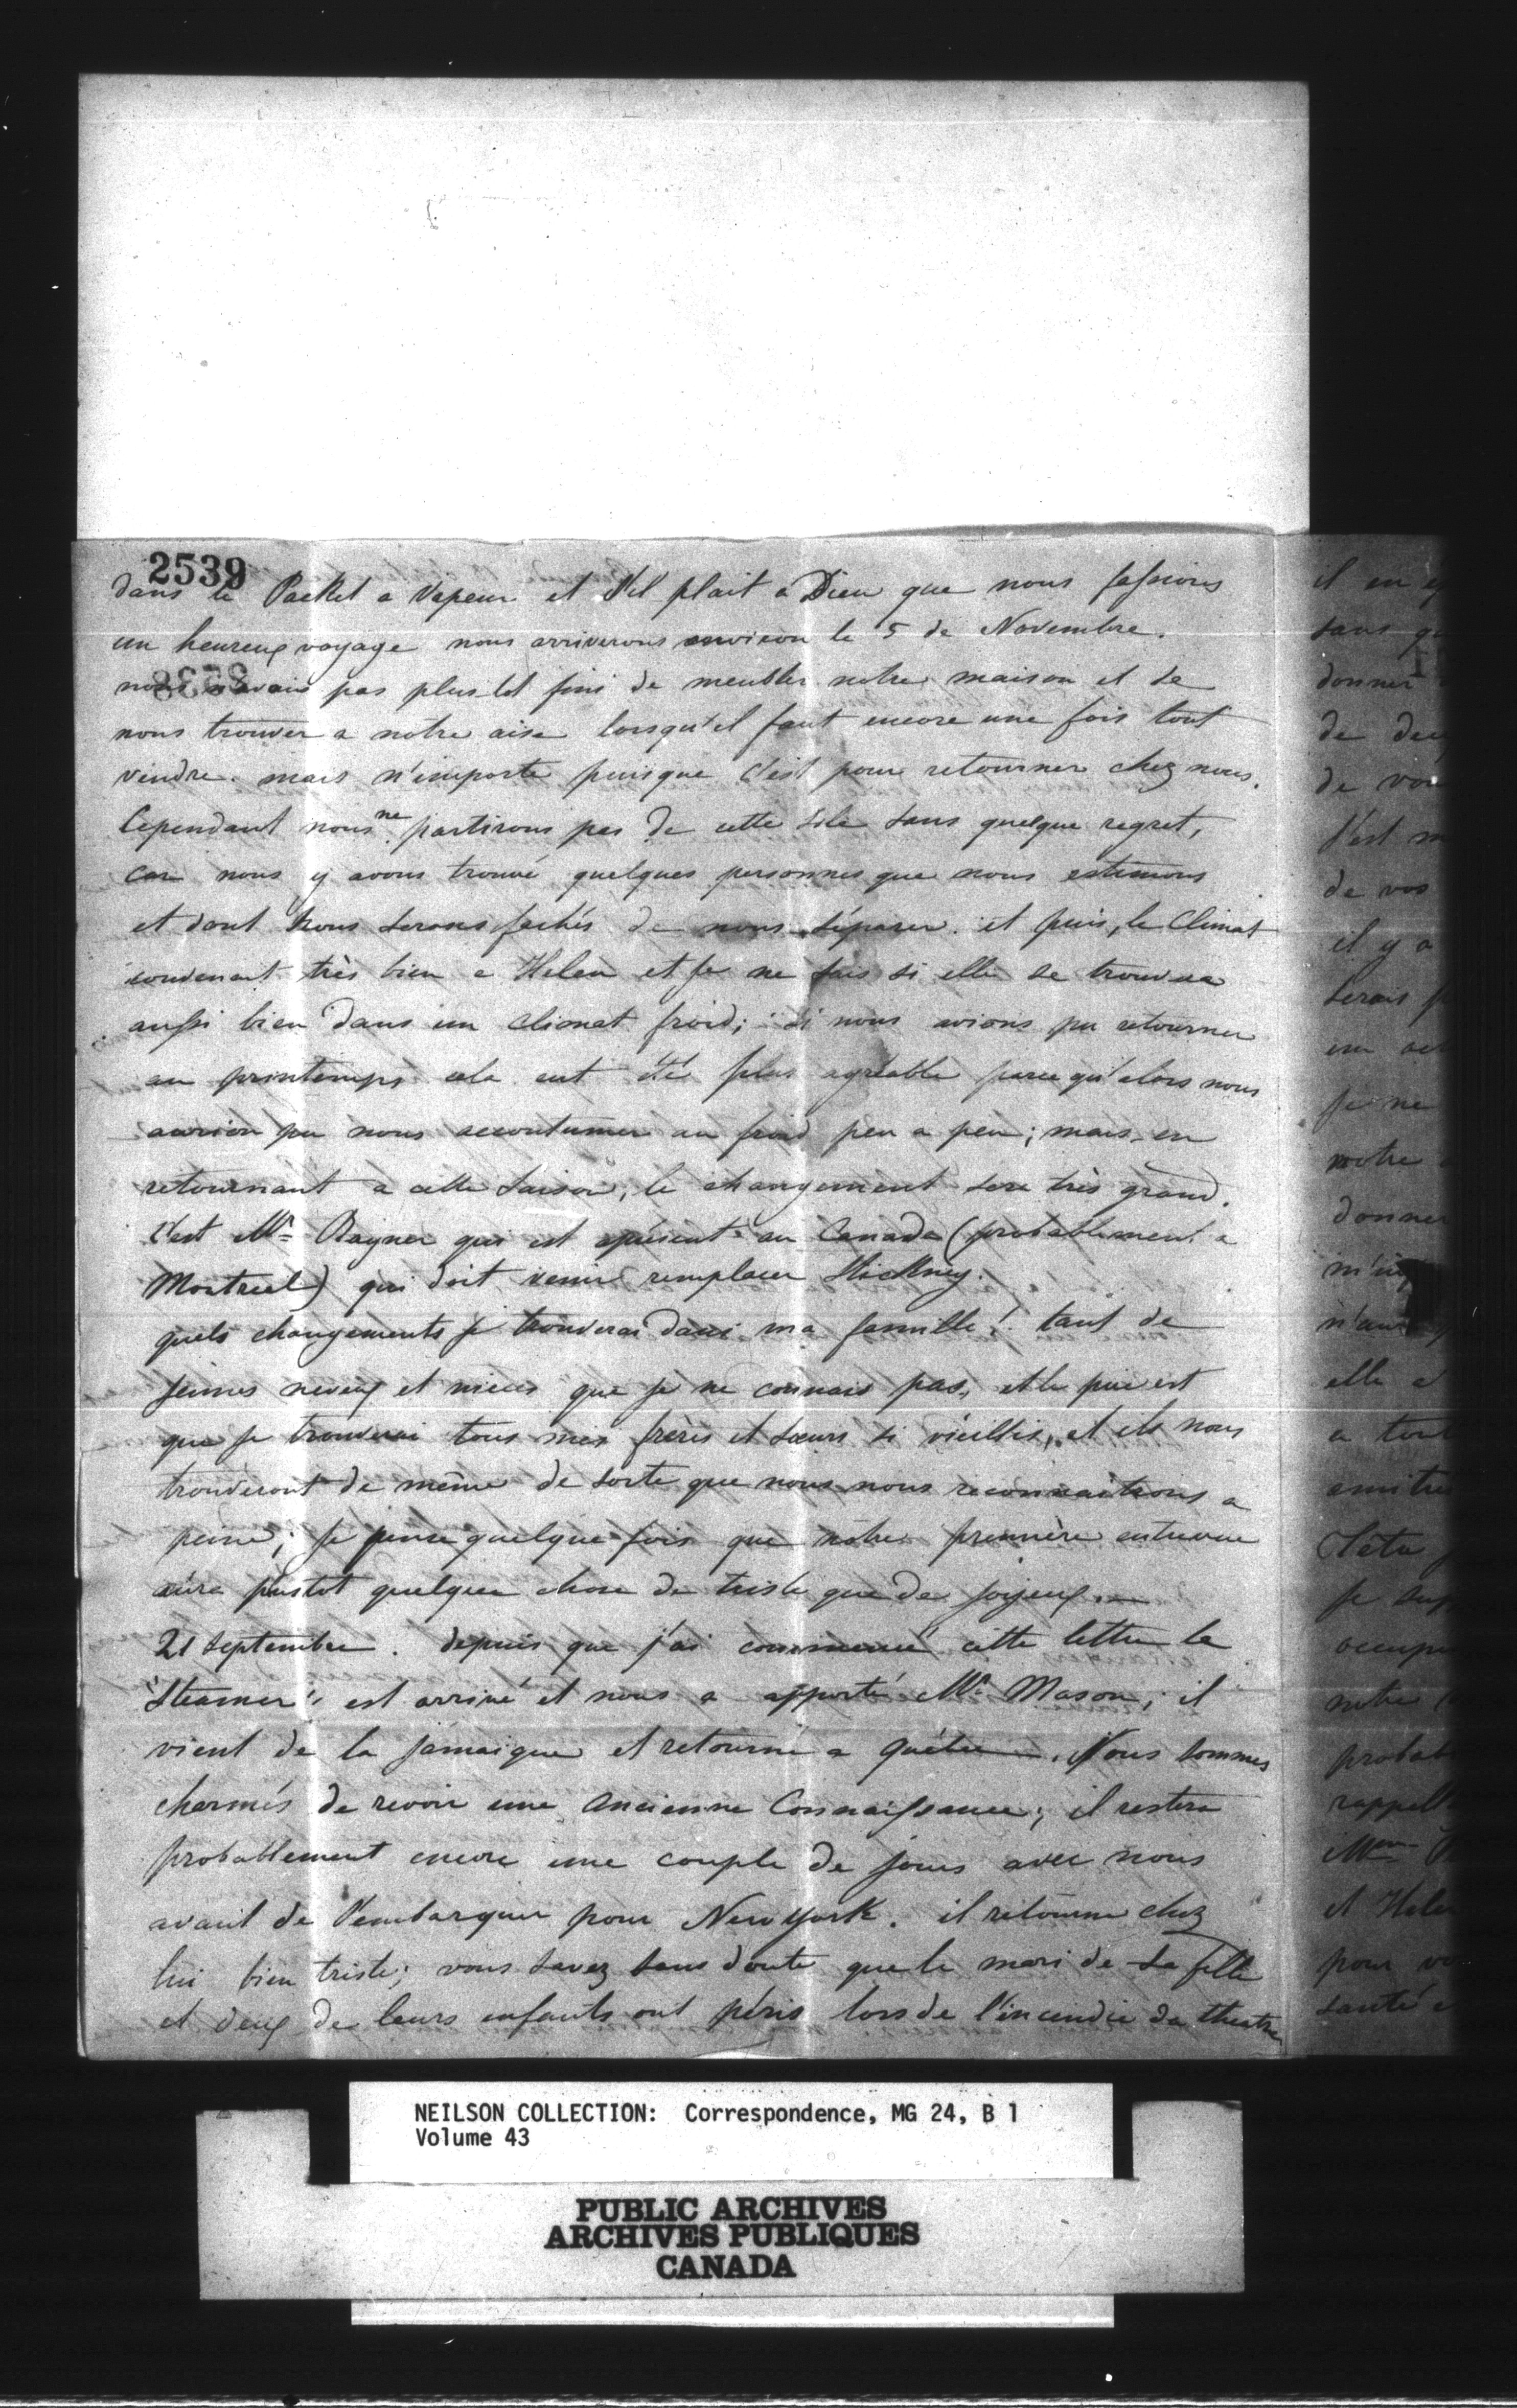 2539
dans le Packet a Vapeur et s'il plait a Dieu que nous fassions
un heureux voyage nous arriverons environ le 5 de Novembre.
nous n'avais pas plustot fini de meubler notre maison et de
nous trouver a notre aise lorsqu'il faut encore une fois tout
vendre. mais n'importe puisque c'est pour retourner chez nous.
Cependant nous ne partirons pas de cette isle sans quelque regret,
car nous y avons trouvé quelques personnes que nous estimons
et dont nous serons fachés de nous séparer. et puis, le Climat
convenait très bien a Helen et je ne sais si elle se trouvera
aussi bien dans un climat froid; si nous avions pu retourner
au printemps cela eut été plus agréable parce qu'alors nous
aurion pu nous accoutumer au froid peu a peu; mais en
retournant a cette saison, le changement sera très grand.
c'est Mr Rayner qui est apresent au Canada (probablement a
Montreal) qui doit venir remplacer Hickney.
quels changements je trouverai dans ma famille! tant de
jeunes neveux et nieces que je ne connais pas, et le pire est
que je trouverai tous mes frères et soeurs si vieillis, et ils nous
trouveront de même de sorte que nous nous reconnaitrons a
peine; je pense quelque fois que notre première entrevue
aura pustot quelque chose de triste que de joyeux. —
21 Septembre. depuis que j'ai commencé cette lettre le
"Steamer" est arrivé et nous a apporté Mr Mason; il
vient de la jamaique et retourne a Québec. Nous sommes
charmés de revoir une Ancienne Connaissance; il restera
probablement encore une couple de jours avec nous
avant de s'embarquer pour New York. il retourne chez
lui bien triste; vous savez sans doute que le mari de sa fille
et deux de leurs enfants ont péris lors de l'incendie du theatre
il en
sans
donner
de
de
c'est
de vos
il y a
serais
un
je ne
notre
donner
elle a
a
je
notre
rappell
Mme
et Helen
pour
santé
NEILSON COLLECTION: Correspondence, MG 24, B 1
Volume 43
PUBLIC ARCHIVES
ARCHIVES PUBLIQUES
CANADA